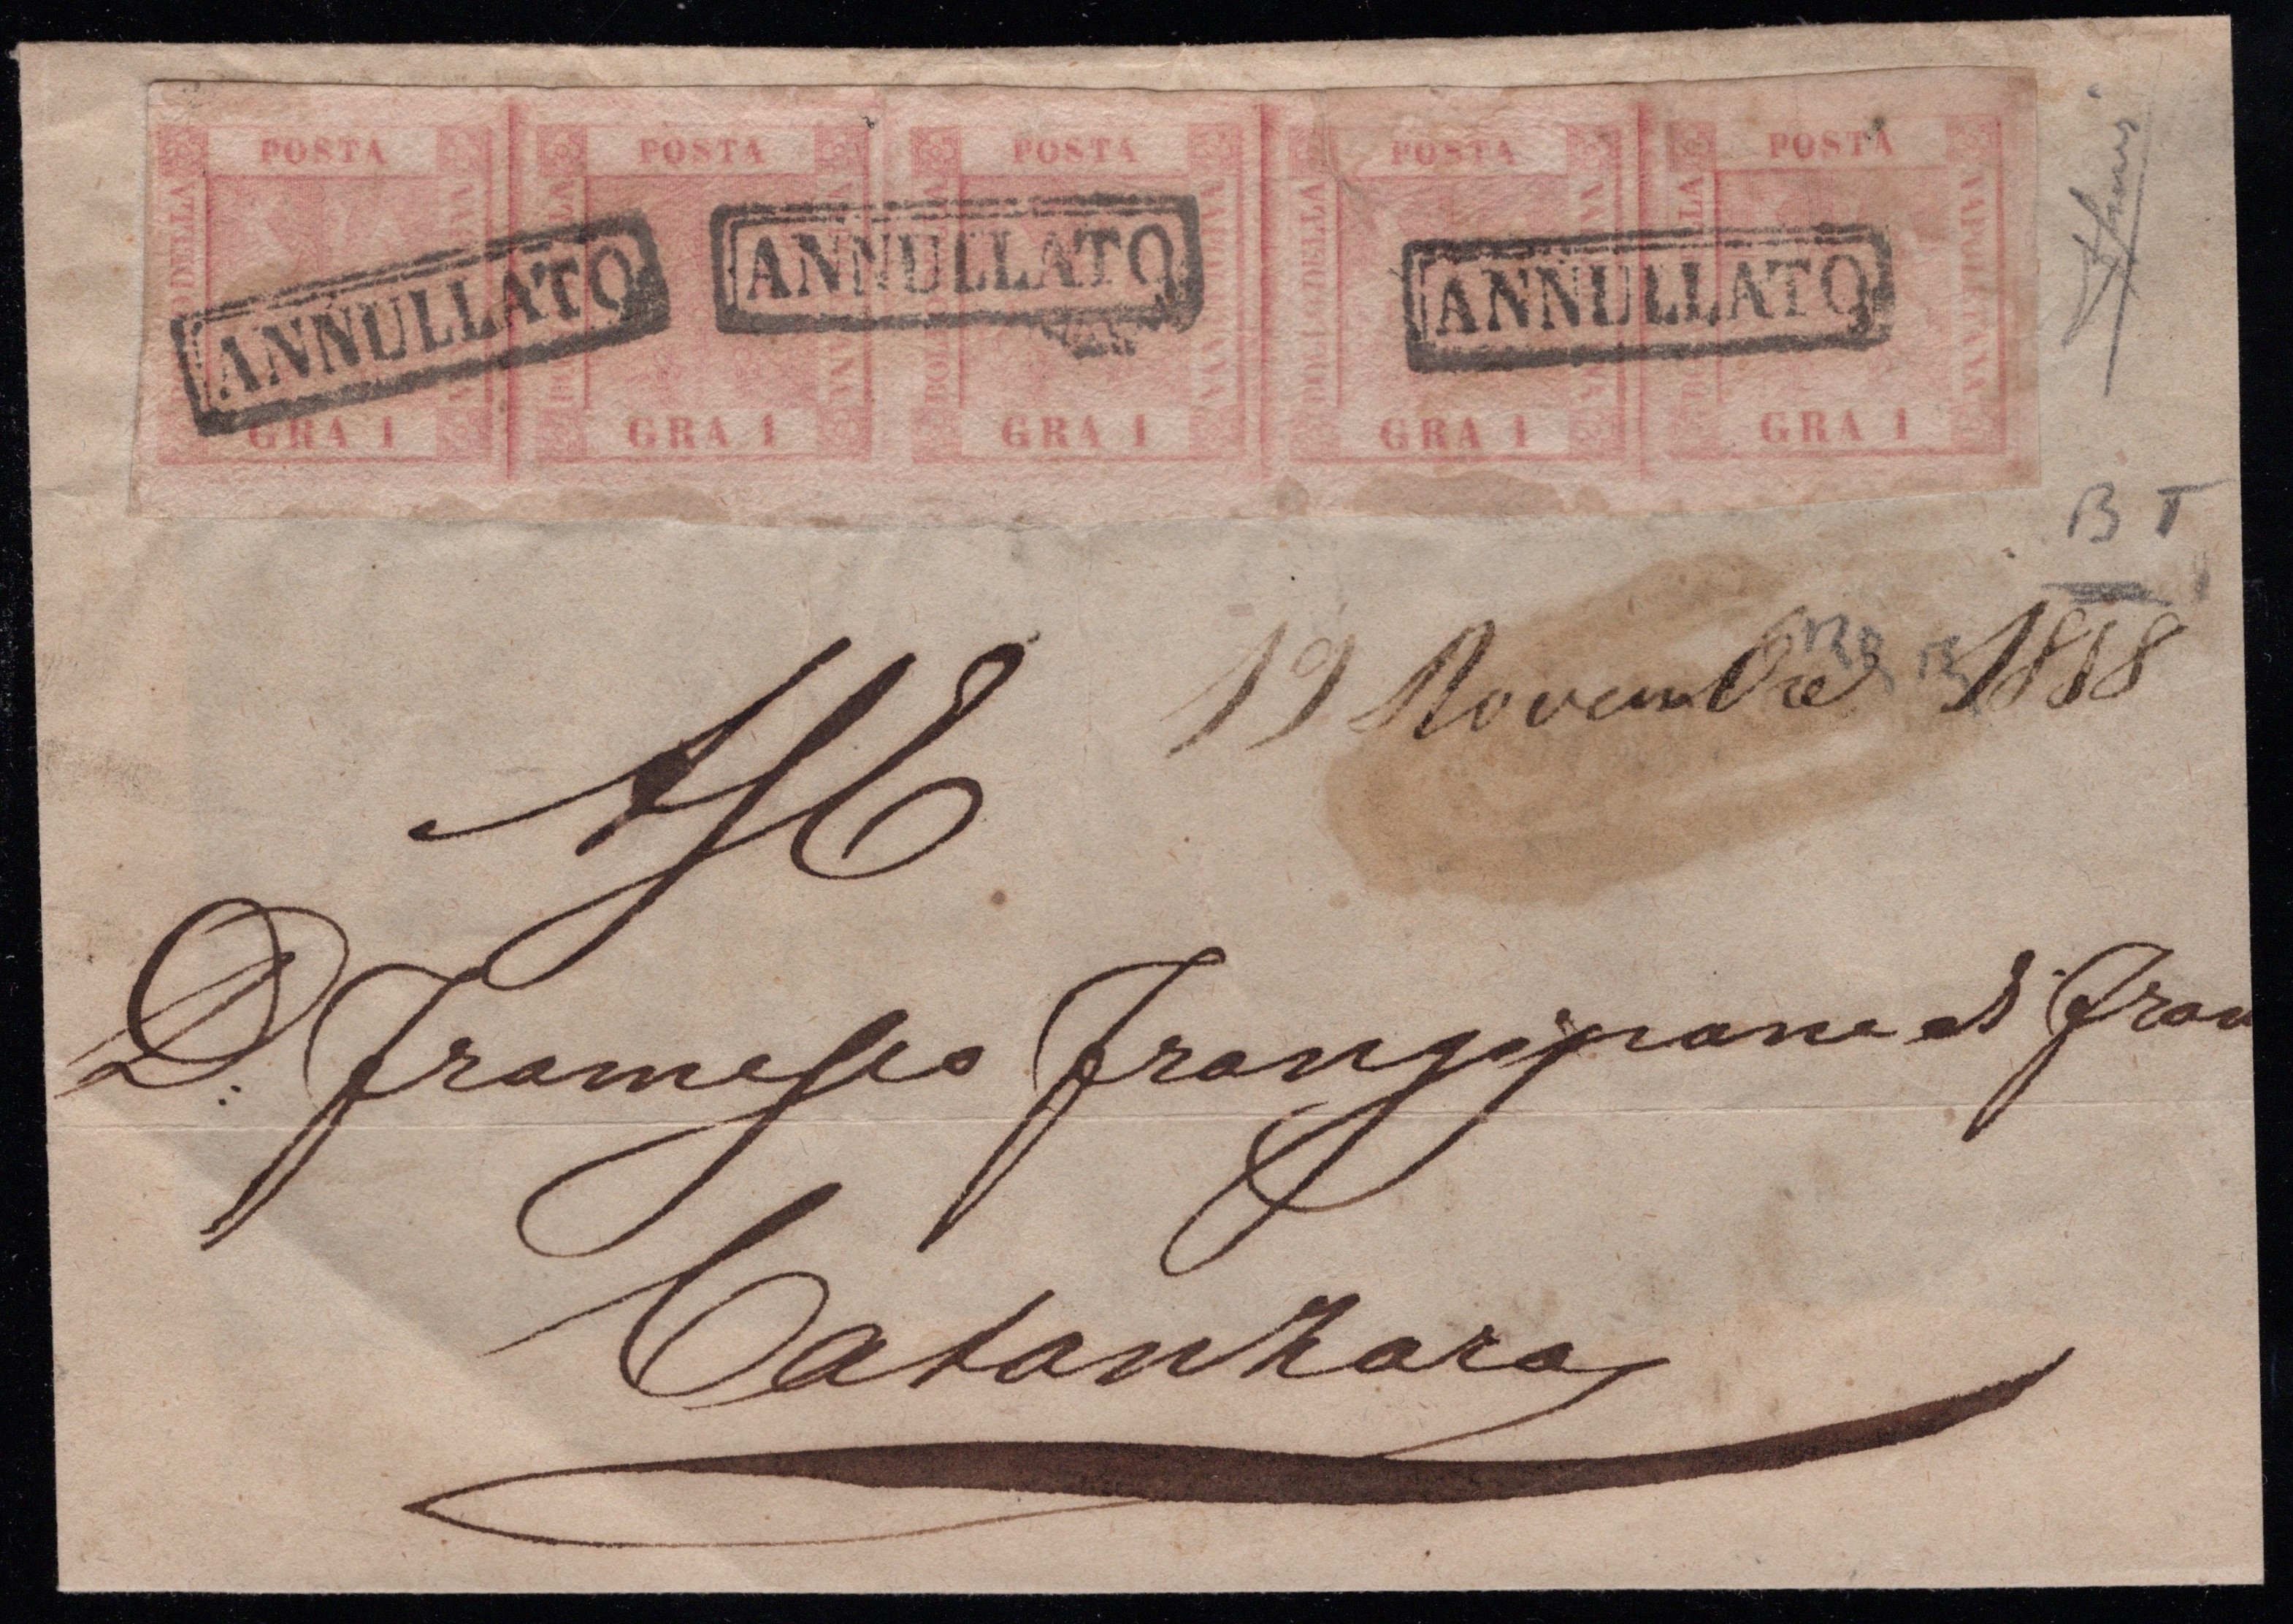 POSTA POSTA POSTA POSTA POSTA
BOLLO DELLA BOLLO DELLA BOLLO DELLA BOLLO DELLA BOLLO DELLA
NAPOLETANA
ANNULLATO ANNULLATO ANNULLATO
GRA 1 GRA 1 GRA 1 GRA 1 GRA 1
B T
19 Novembre 1858
A
D. Francesco Frangipane di Fran
Catanzaro